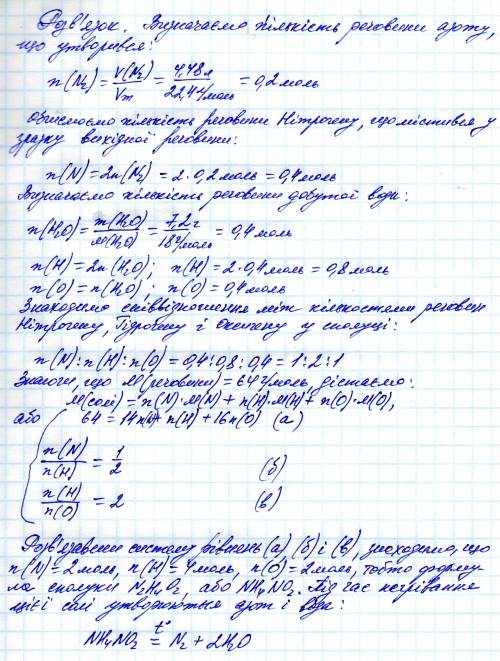 Розв'язок. Визначаємо кількість речовини азоту,
що утворився:
n(N₂) = V(N₂)/Vm = 4,48л/22,4л/моль = 0,2 моль
Обчислюємо кількість речовини Нітрогену, що містився у
зразку вихідної речовини:
n(N) = 2n(N₂) = 2·0,2 моль = 0,4 моль
Визначаємо кількість речовини добутої води:
n(H₂O) = m(H₂O)/M(H₂O) = 7,2г/18г/моль = 0,4 моль
n(H) = 2n(H₂O); n(H) = 2·0,4 моль = 0,8 моль
n(O) = n(H₂O); n(O) = 0,4 моль
Знаходимо співвідношення між кількостями речовин
Нітрогену, Гідрогену і Оксигену у сполуці:
n(N):n(H):n(O) = 0,4:0,8:0,4 = 1:2:1
Знаючи, що M(речовини) = 64г/моль, дістаємо:
M(солі) = n(N)·M(N) + n(H)·M(H) + n(O)·M(O),
або 64 = 14n(N) + n(H) + 16n(O) (а)
n(N)/n(H) = 1/2 (б)
n(H)/n(O) = 2 (в)
Розв'язавши систему рівнянь (а), (б) і (в), знаходимо, що
n(N) = 2 моль, n(H) = 4 моль, n(O) = 2 моль, тобто форму-
ла сполуки N₂H₄O₂, або NH₄NO₂. Під час нагрівання
цієї солі утворюються азот і вода:
NH₄NO₂ =t°= N₂ + 2H₂O